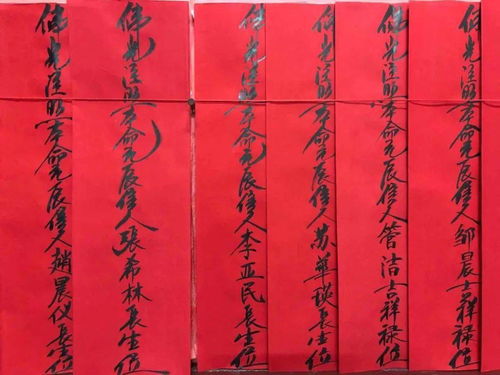 佛光注照本命元辰信人邹晨吉祥禄位
佛光注照本命元辰信人管洁吉祥禄位
佛光注照本命元辰信人苏華瑛长生位
佛光注照本命元辰信人李亚民长生位
佛光注照本命元辰信人張希林长生位
佛光注照本命元辰信人趙晨仪长生位